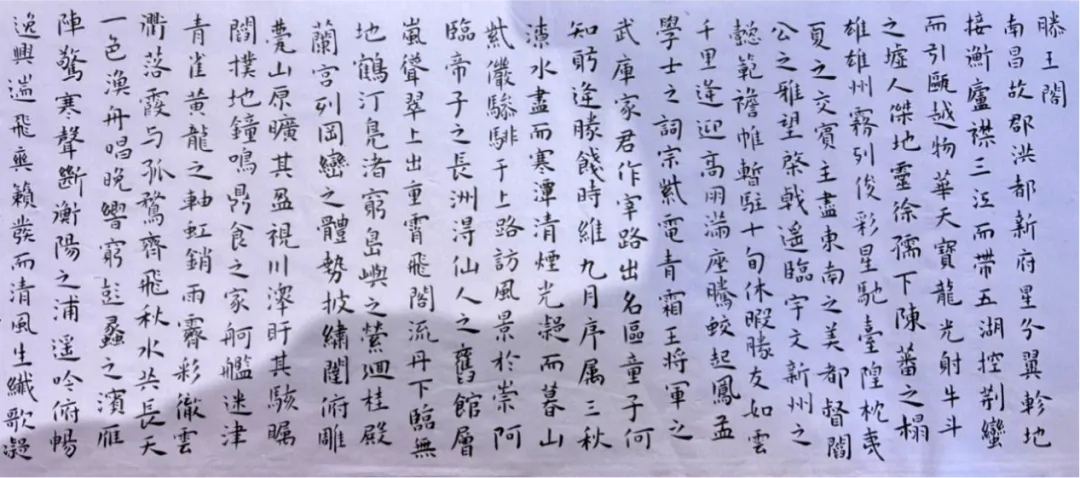 滕王閣
南昌故郡洪都新府星分翼軫地
接衡廬襟三江而帶五湖控荆蠻
而引甌越物華天寶龍光射牛斗
之墟人傑地靈徐孺下陳蕃之榻
雄雄州霧列俊彩星馳臺隍枕夷
夏之交賓主盡東南之美都督閻
公之雅望棨戟遥臨宇文新州之
懿範襜帷暫駐十旬休暇勝友如雲
千里逢迎高朋滿座騰蛟起鳳孟
學士之詞宗紫電青霜王將軍之
武庫家君作宰路出名區童子何
知躬逢勝餞時維九月序属三秋
潦水盡而寒潭清煙光凝而暮山
紫儼驂騑于上路訪風景於崇阿
臨帝子之長洲得仙人之舊館層
嵐聳翠上出重霄飛閣流丹下臨無
地鶴汀鳧渚窮島嶼之縈迴桂殿
蘭宫列岡巒之體勢披繡闥俯雕
甍山原曠其盈視川澤盱其駭矚
閭撲地鐘鳴鼎食之家舸艦迷津
青雀黄龍之軸虹銷雨霽彩徹雲
衢落霞与孤鶩齊飛秋水共長天
一色漁舟唱晚響窮彭蠡之濱雁
陣驚寒聲斷衡陽之浦遥吟俯暢
逸興遄飛爽籟發而清風生纖歌凝